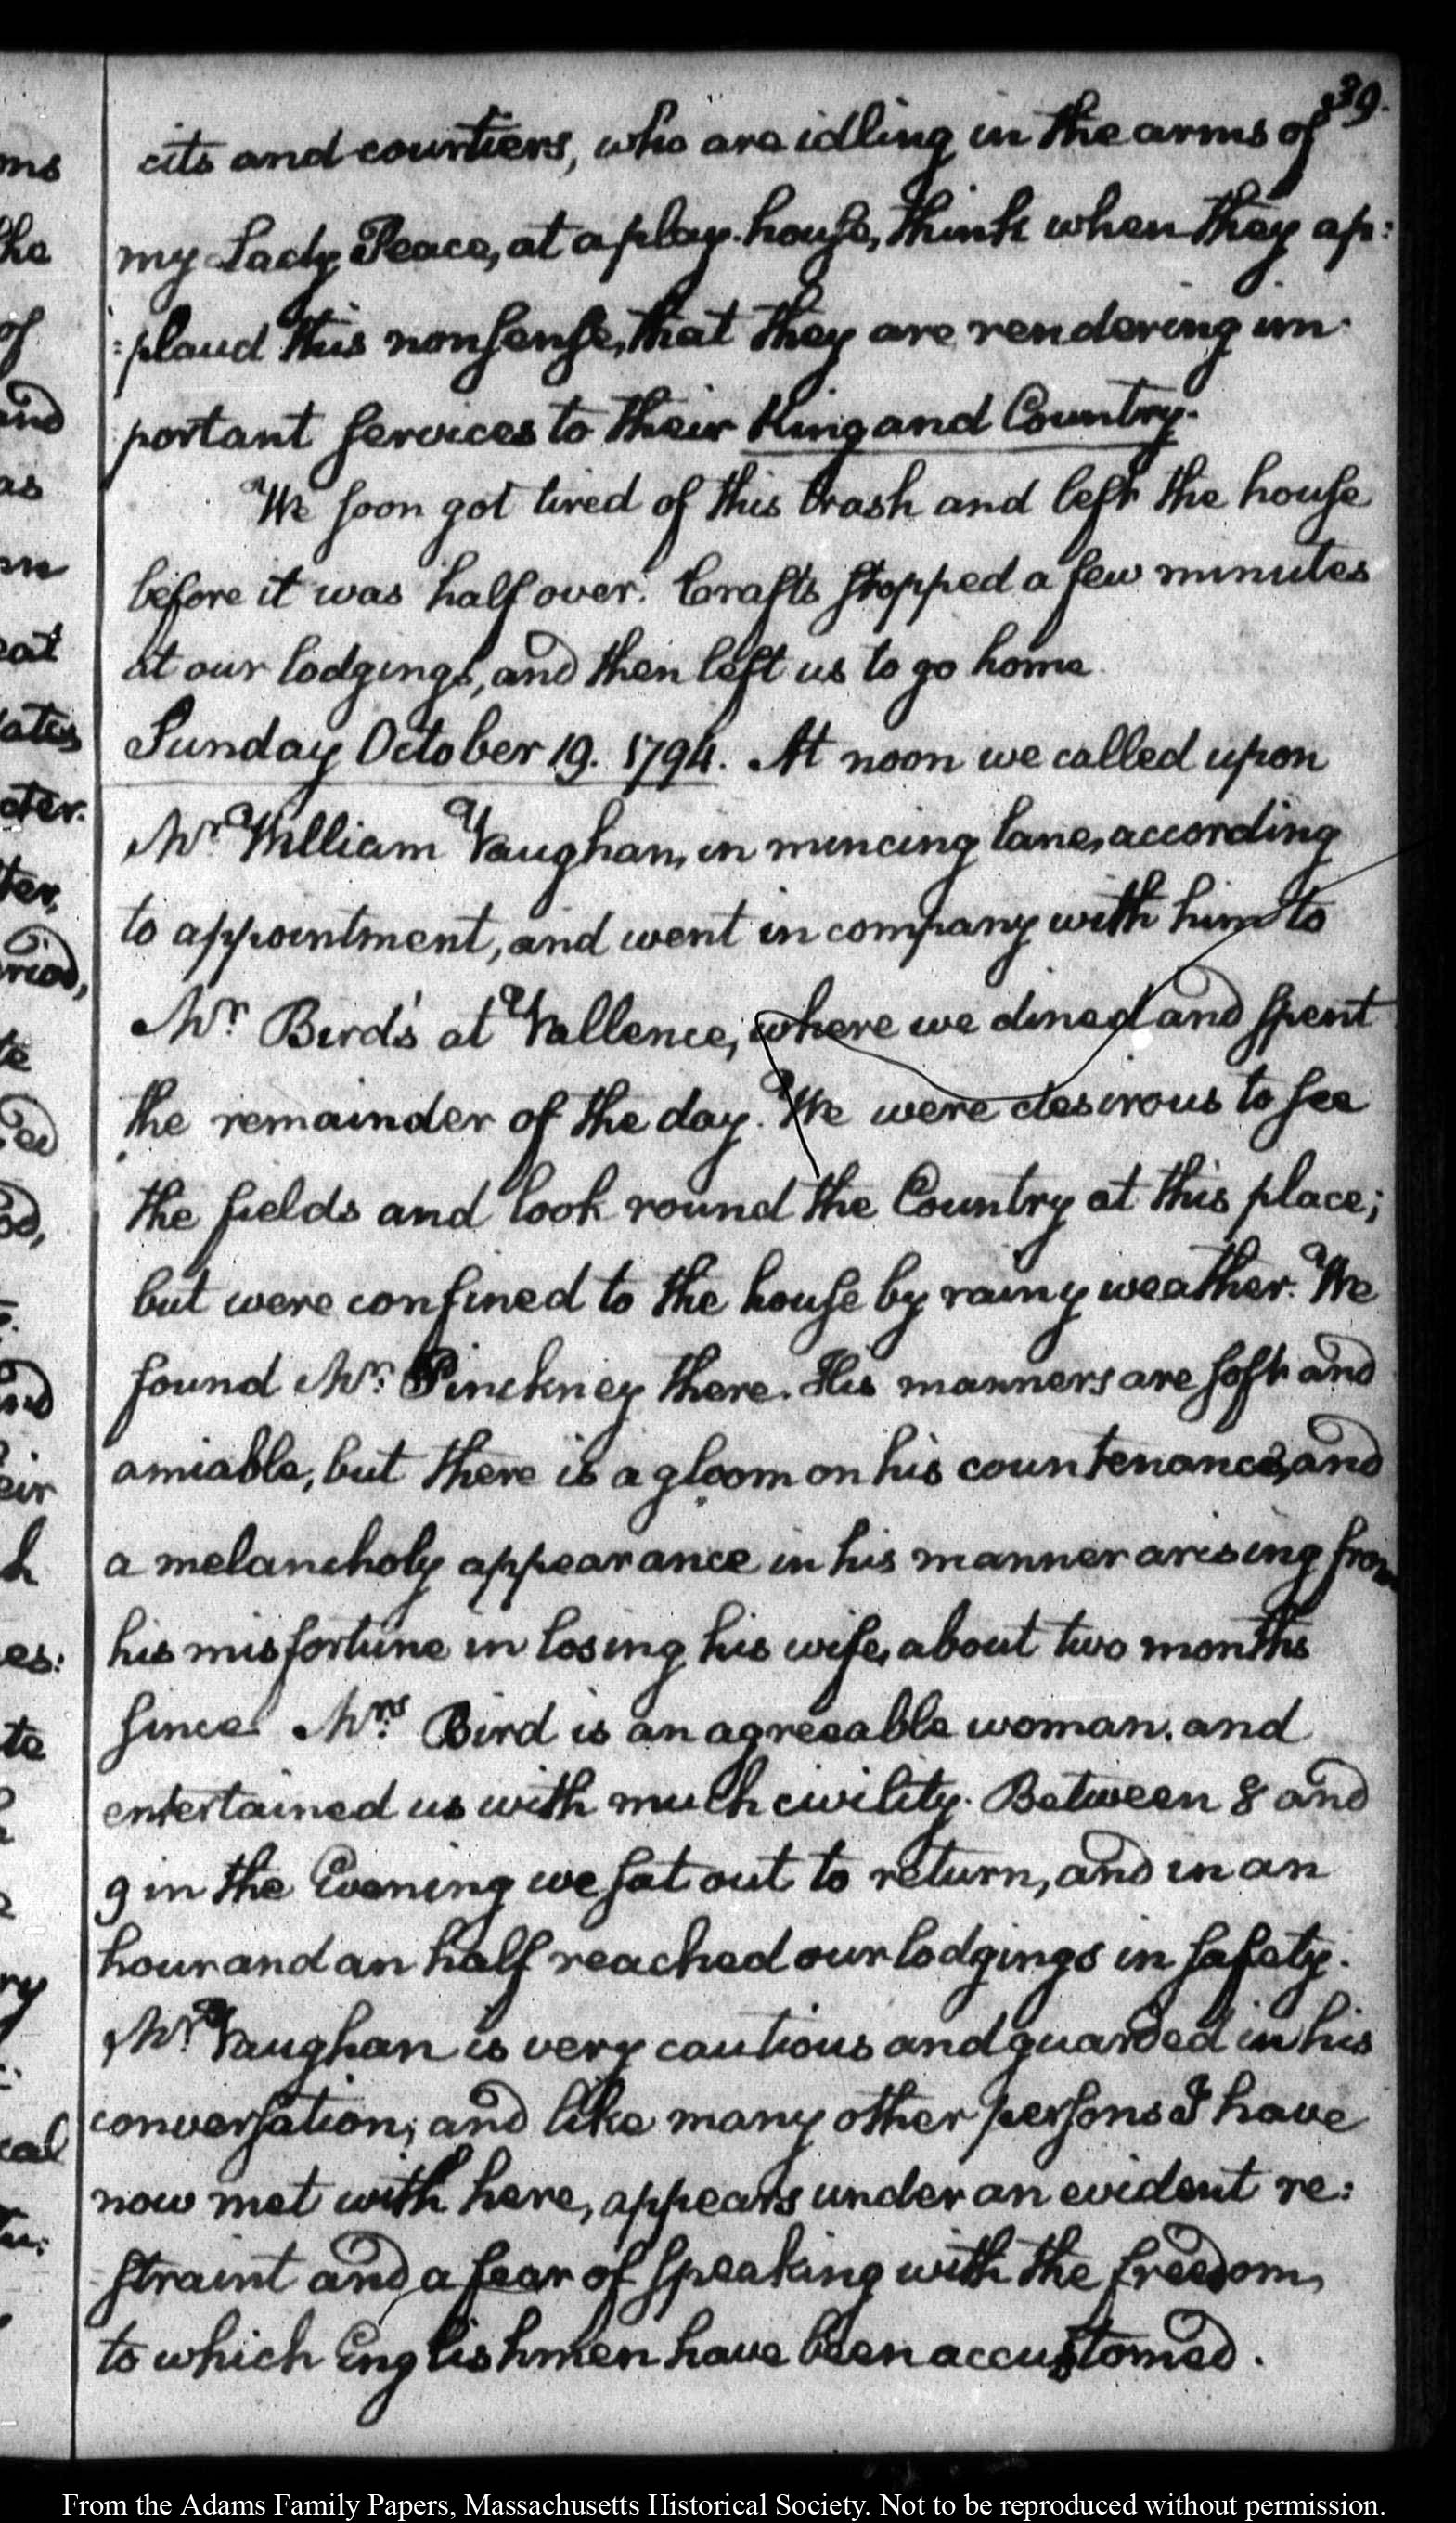 39.
cits and courtiers, who are idling in the arms of
my Lady Peace, at a play-house, think when they ap:
:plaud this nonsense, that they are rendering im-
portant services to their King and Country.
We soon got tired of this trash and left the house
before it was half over. Crafts stopped a few minutes
at our lodgings, and then left us to go home.
Sunday October 19. 1794. At noon we called upon
Mr. William Vaughan, in mincing lane, according
to appointment, and went in company with him to
Mr. Bird's at Vallence, where we dined and spent
the remainder of the day. We were desirous to see
the fields and look round the Country at this place;
but were confined to the house by rainy weather. We
found Mr. Pinckney there. His manners are soft and
amiable, but there is a gloom on his countenance, and
a melancholy appearance in his manner arising from
his misfortune in losing his wife, about two months
since. Mrs. Bird is an agreeable woman, and
entertained us with much civility. Between 8 and
9 in the Evening we sat out to return, and in an
hour and an half reached our lodgings in safety.
Mr. Vaughan is very cautious and guarded in his
conversation; and like many other persons I have
now met with here, appears under an evident re:
straint and a fear of speaking with the freedom,
to which Englishmen have been accustomed.
From the Adams Family Papers, Massachusetts Historical Society. Not to be reproduced without permission.